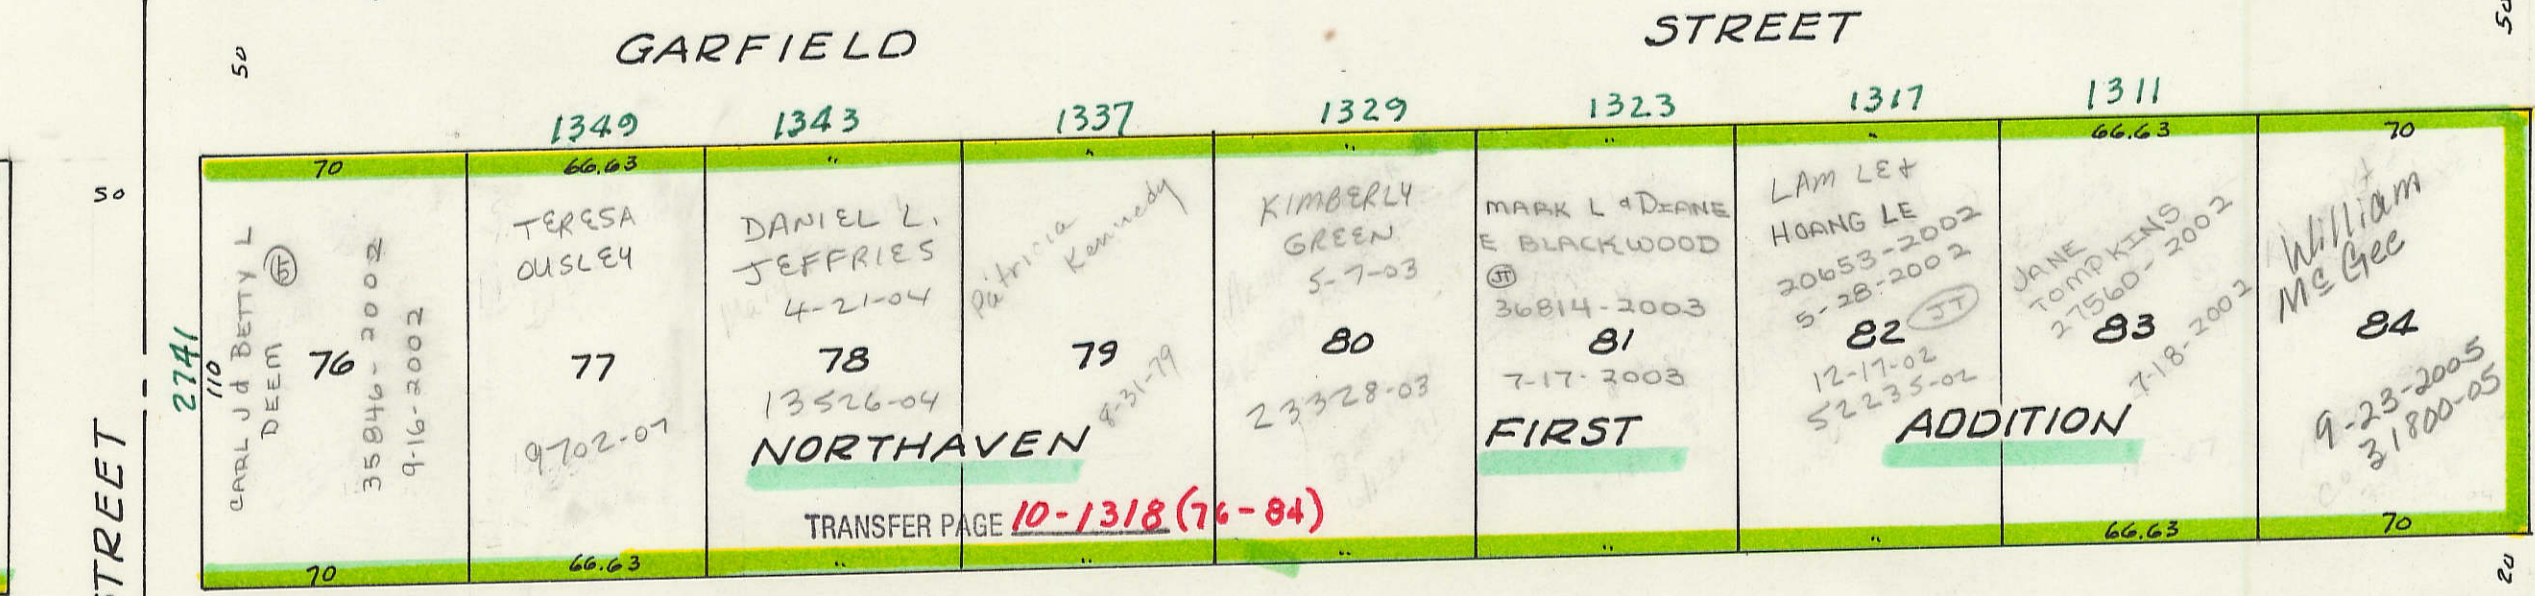 GARFIELD STREET
50
50
1349 1343 1337 1329 1323 1317 1311
50
70 66.63 " " " " " 66.63 70
CARL J & BETTY L
DEEM
JT
76
35846-2002
9-16-2002
2741
110
TERESA
OUSLEY
77
9702-07
DANIEL L.
JEFFRIES
4-21-04
78
13526-04
Patricia
Kennedy
79
8-31-79
KIMBERLY
GREEN
5-7-03
80
23328-03
MARK L & DIANE
E BLACKWOOD
JT
36814-2003
81
7-17-2003
LAM LE &
HOANG LE
20653-2002
5-28-2002
JT
82
12-17-02
52235-02
JANE
TOMPKINS
27560-2002
83
7-18-2002
William
McGee
84
9-23-2005
31800-05
NORTHAVEN FIRST ADDITION
TRANSFER PAGE 10-1318 (76-84)
70 66.63 " " " " " 66.63 70
STREET
20